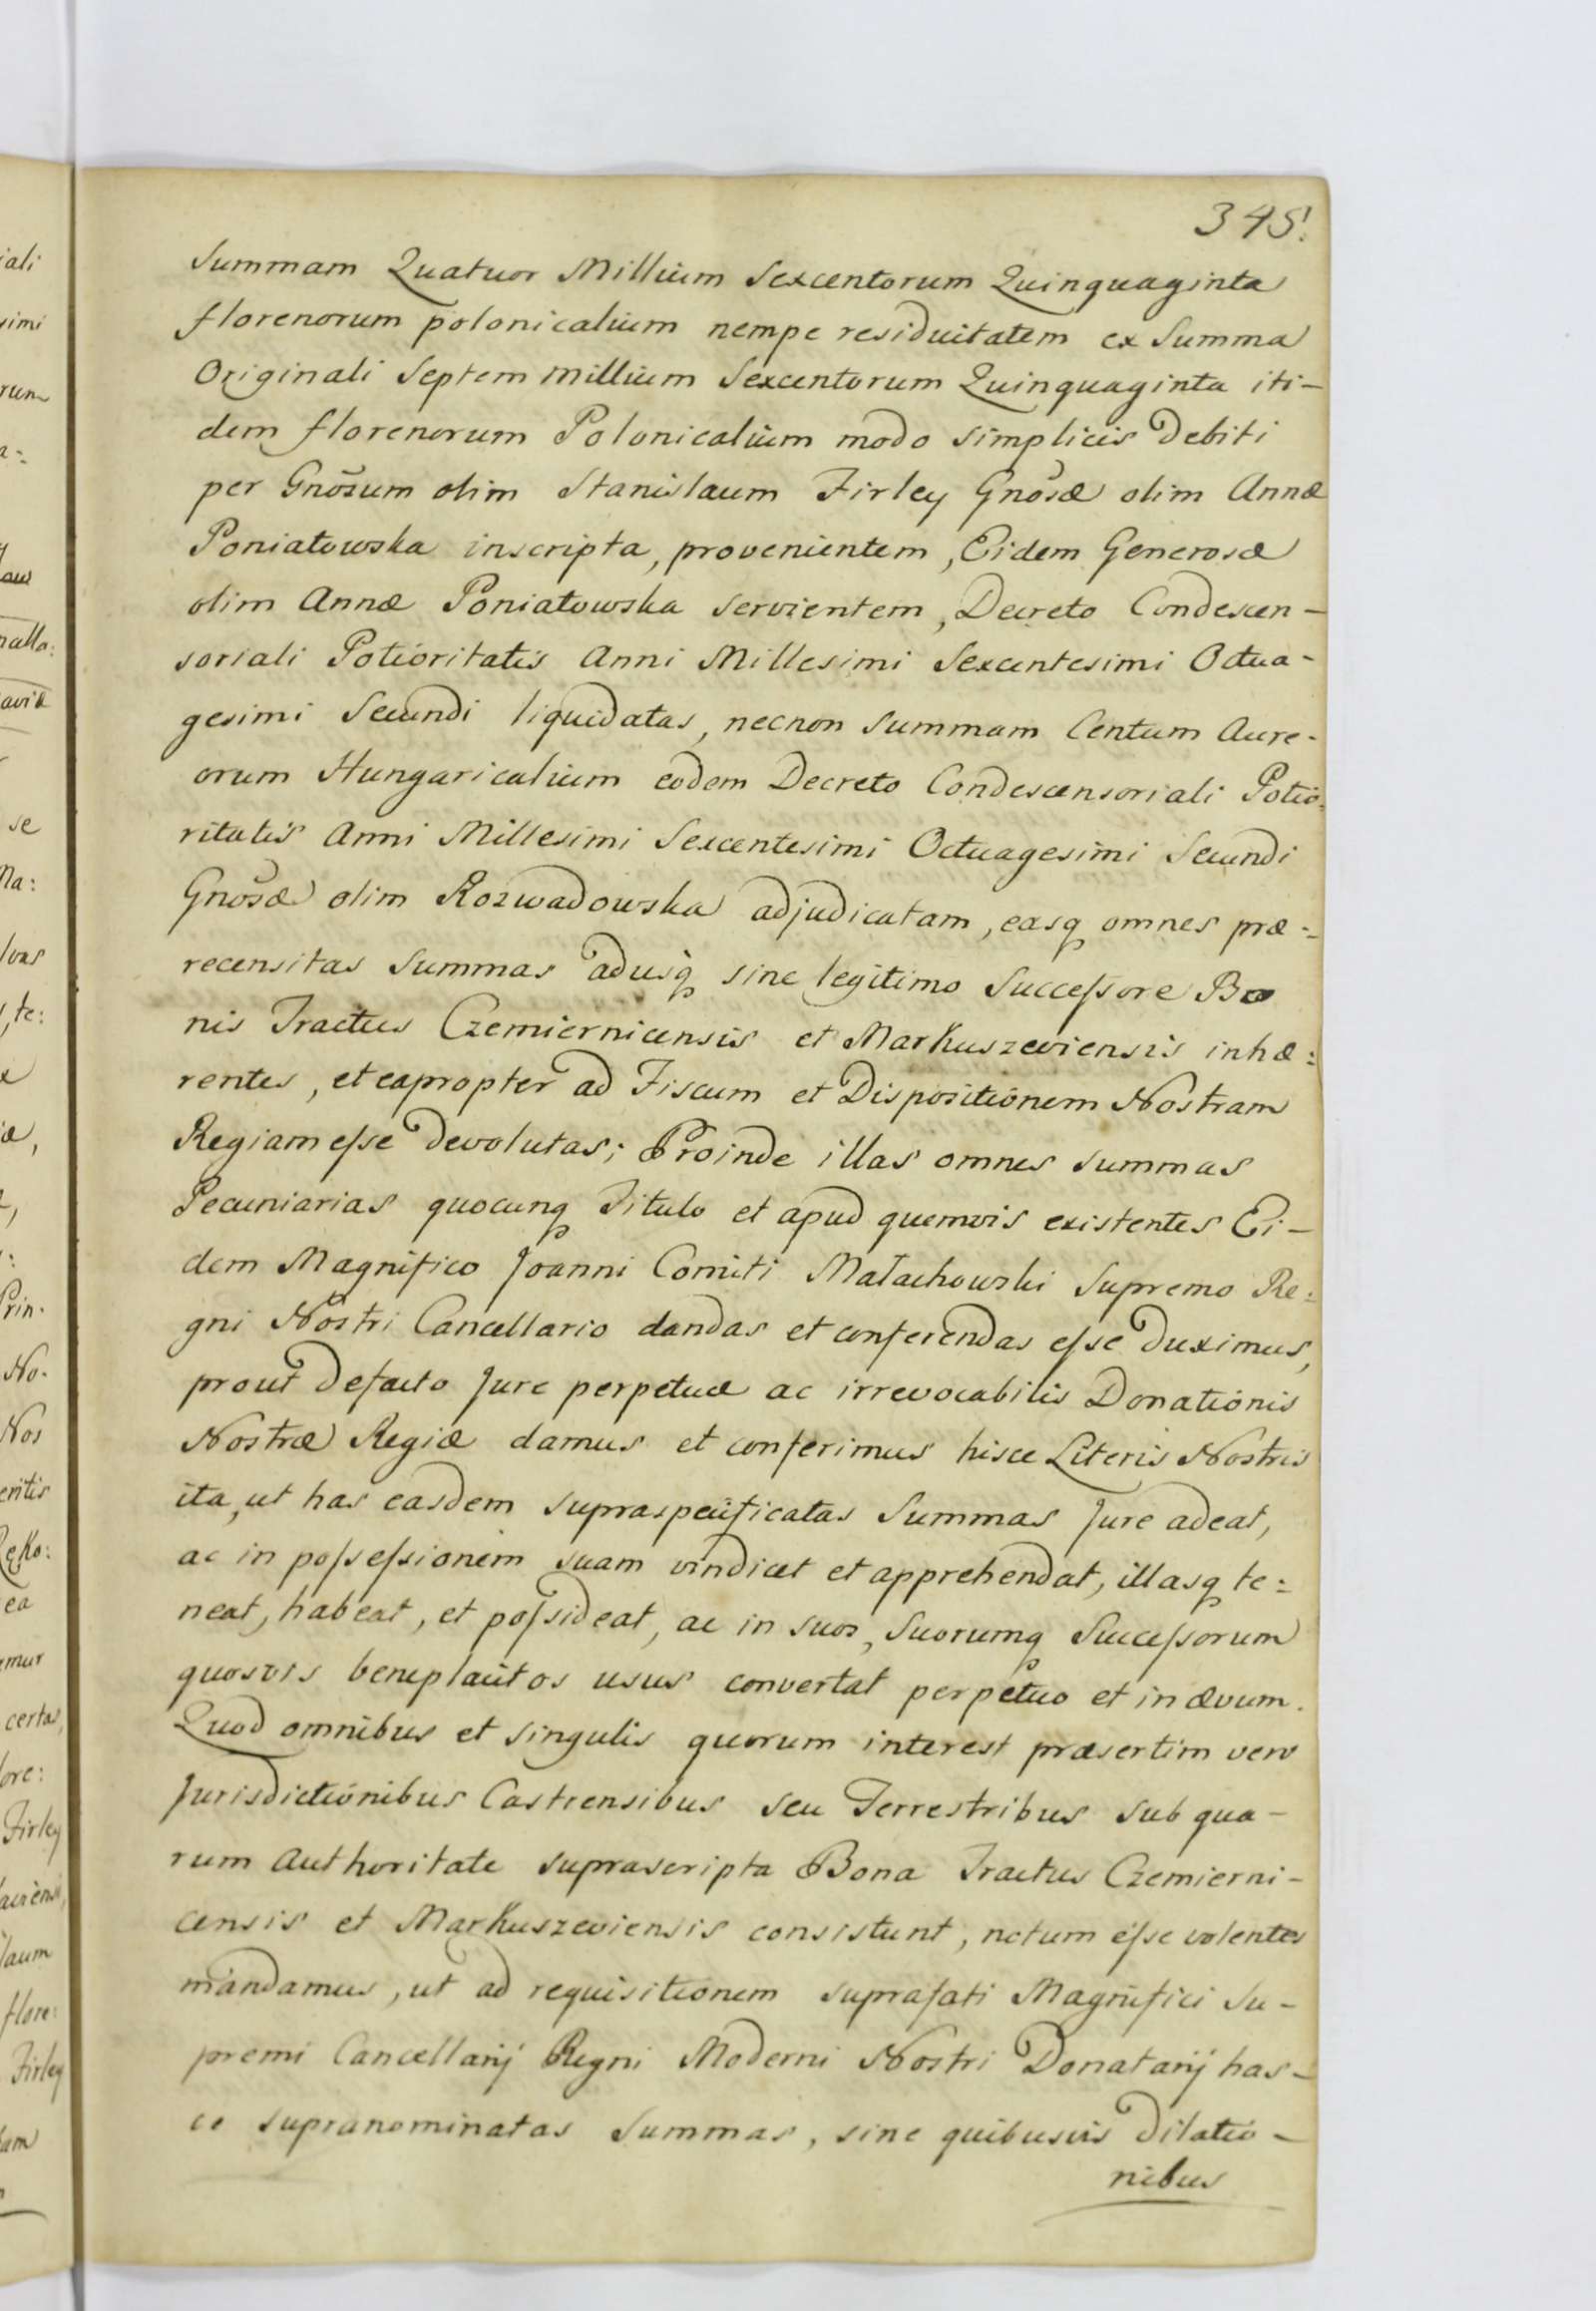 345.
Summam Quatuor Millium Sexcentorum Quinquaginta
florenorum polonicalium nempe residuitatem ex Summa
Originali Septem millium Sexcentorum Quinquaginta iti-
dem florenorum Polonicalium modo simplicis Debiti
per Gnõsum olim Stanislaum Firley Gnõsæ olim Annæ
Poniatowska inscripta, provenientem, Eidem Generosæ
olim Annæ Poniatowska servientem, Decreto Condescen-
soriali Potioritatis Anni Millesimi Sexcentesimi Octua-
gesimi Secundi liquidatas, necnon Summam Centum Aure-
orum Hungaricalium eodem Decreto Condescensoriali Potio-
ritatis Anni Millesimi Sexcentesimi Octuagesimi Secundi
Gnõsæ olim Rozwadowska adjudicatam, easq omnes præ:
recensitas Summas adusq sine legitimo Successore Bo
nis Tractus Czemiernicensis et Markuszeviensis inhæ:
rentes, et eapropter ad Fiscum et Dispositionem Nostram
Regiam esse devolutas; Proinde illas omnes summas
Pecuniarias quocunq Titulo et apud quemvis existentes Ei-
dem Magnifico Joanni Comiti Małachowski Supremo Re:
gni Nostri Cancellario dandas et conferendas esse duximus,
prout defacto Jure perpetuæ ac irrevocabilis Donationis
Nostræ Regiæ damus et conferimus hisce Literis Nostris
ita, ut has easdem supraspecificatas Summas Jure adeat,
ac in possessionem suam vindicet et apprehendat, illasq te:
neat, habeat, et possideat, ac in suos, Suorumq Successorum
quosvis beneplacitos usus convertat perpetuo et in ævum.
Quod omnibus et singulis quorum interest præsertim vero
Jurisdictionibus Castrensibus seu Terrestribus sub qua-
rum Authoritate suprascripta Bona Tractus Czemierni-
censis et Markuszeviensis consistunt, notum esse volentes
mandamus, ut ad requisitionem suprafati Magnifici Su-
premi Cancellarij Regni Moderni Nostri Donatarij has-
ce supranominatas Summas, sine quibusvis dilatio-
nibus